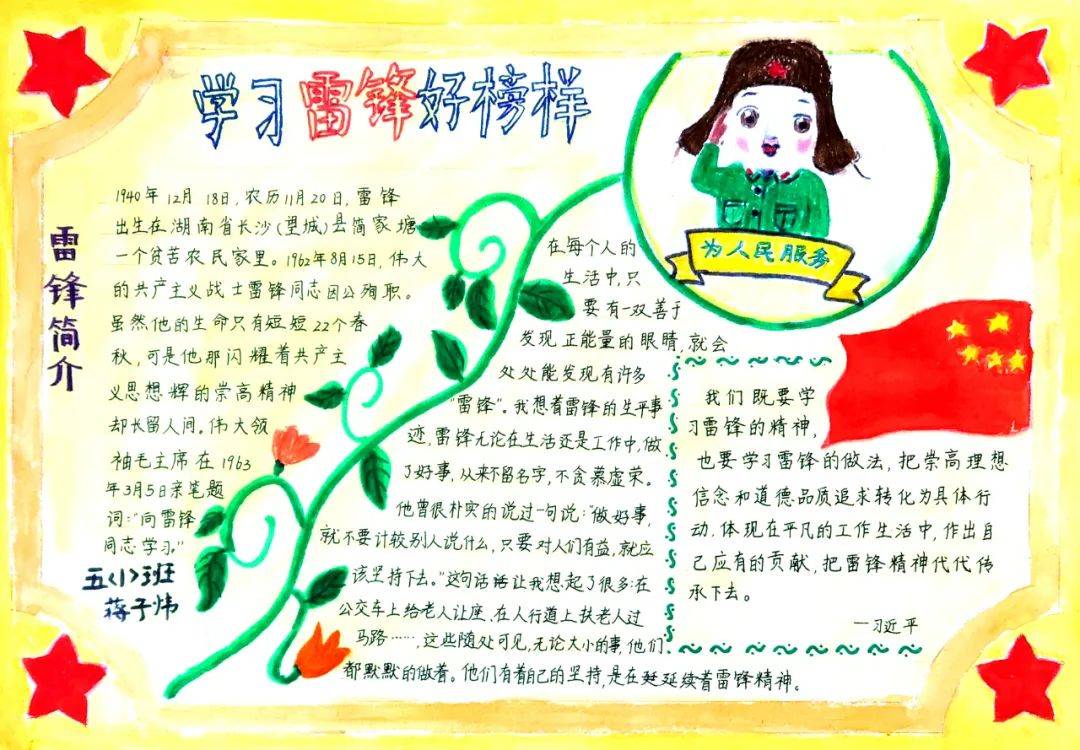 学习雷锋好榜样
为人民服务
雷锋简介
1940年12月18日,农历11月20日,雷锋
出生在湖南省长沙(望城)县简家塘
一个贫苦农民家里。1962年8月15日,伟大
的共产主义战士雷锋同志因公殉职。
虽然他的生命只有短短22个春
秋,可是他那闪耀着共产主
义思想辉的崇高精神
却长留人间。伟大领
袖毛主席在1963
年3月5日亲笔题
词:“向雷锋
同志学习。”
五<1>班
蒋子炜
在每个人的
生活中,只
要有一双善于
发现正能量的眼睛,就会
处处能发现有许多
“雷锋”。我想着雷锋的生平事
迹,雷锋无论在生活还是工作中,做
了好事,从来不留名字,不贪慕虚荣。
他曾很朴实的说过一句说:“做好事,
就不要计较别人说什么,只要对人们有益,就应
该坚持下去。”这句话话让我想起了很多:在
公交车上给老人让座、在人行道上扶老人过
马路……,这些随处可见,无论大小的事,他们
都默默的做着。他们有着自己的坚持,是在延延续着雷锋精神。
我们既要学
习雷锋的精神,
也要学习雷锋的做法,把崇高理想
信念和道德品质追求转化为具体行
动,体现在平凡的工作生活中,作出自
己应有的贡献,把雷锋精神代代传
承下去。
—习近平